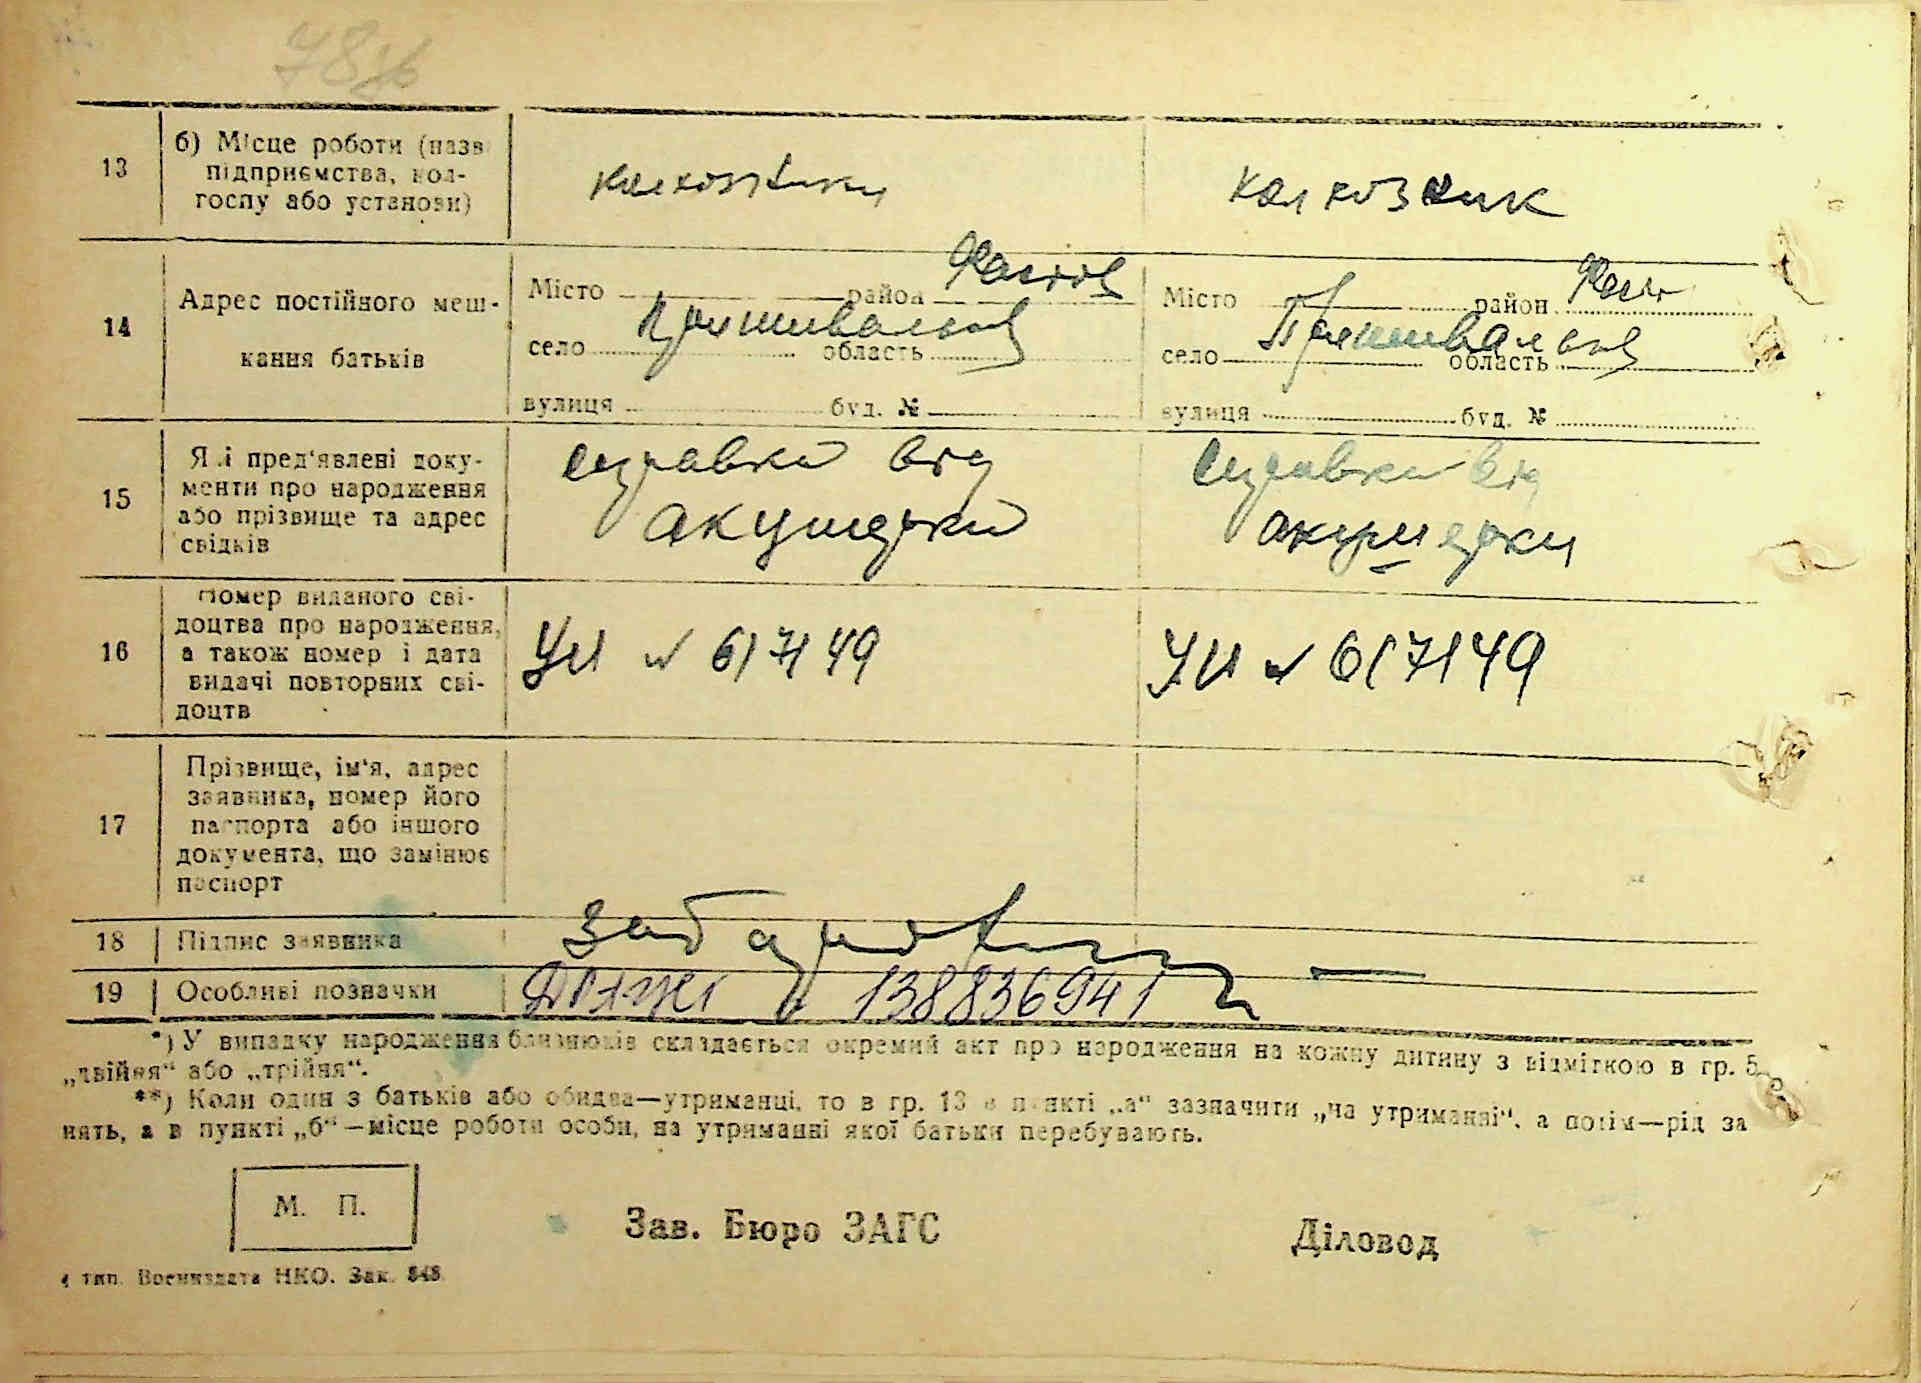 13
б) Місце роботи (назв
підприємства, кол-
госпу або установи)
колхозник
14
Адрес постійного меш-
кання батьків
Місто район Фастов
село область
вулиця буд. №
Місто район Фаст
село область
вулиця буд. №
15
Які пред'явлені доку-
менти про народження
або прізвище та адрес
свідків
справки від
акушерки
справки від
акушерки
16
Номер виданого сві-
доцтва про народження,
а також номер і дата
видачі повторних сві-
доцтв
УИ № 617149
УИ № 617149
17
Прізвище, ім'я, адрес
заявника, номер його
паспорта або іншого
документа, що замінює
паспорт
18 Підпис заявника
19 Особливі позначки
138836941
*) У випадку народження близнюків складається окремий акт про народження на кожну дитину з відміткою в гр. 5
„двійня“ або „трійня“.
**) Коли один з батьків або обидва—утриманці, то в гр. 13 в пункті „а“ зазначити „на утриманні“, а потім—рід за
нять, а в пункті „б“—місце роботи особи, на утриманні якої батьки перебувають.
М. П.
Зав. Бюро ЗАГС
Діловод
тип. Воениздата НКО. Зак. 848